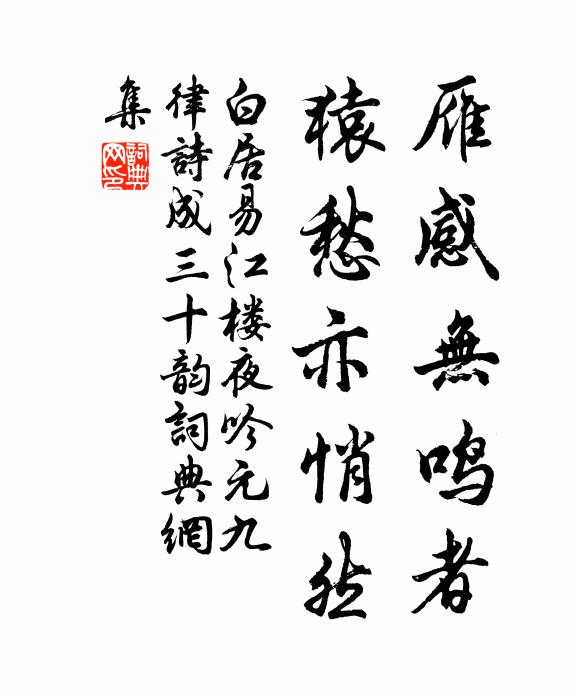 雁感無鸣者
猿愁亦悄然
白居易江楼夜吟元九
律詩成三十韵詞典網
集
詞典
网印